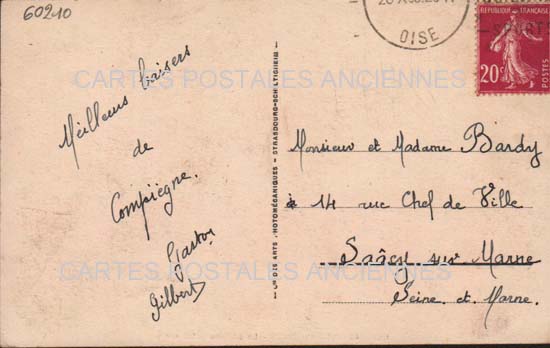 60210
OISE
RÉPUBLIQUE FRANÇAISE
20c
POSTES
CARTES POSTALES ANCIENNES
Meilleurs baisers
de
Compiègne.
Gilbert
Cie DES ARTS PHOTOMÉCANIQUES - STRASBOURG-SCHILTIGHEIM
Monsieur et Madame Bardy
à 14 rue Chef de Ville
Sancy sur Marne
Seine. et. Marne.
CARTES POSTALES ANCIENNES